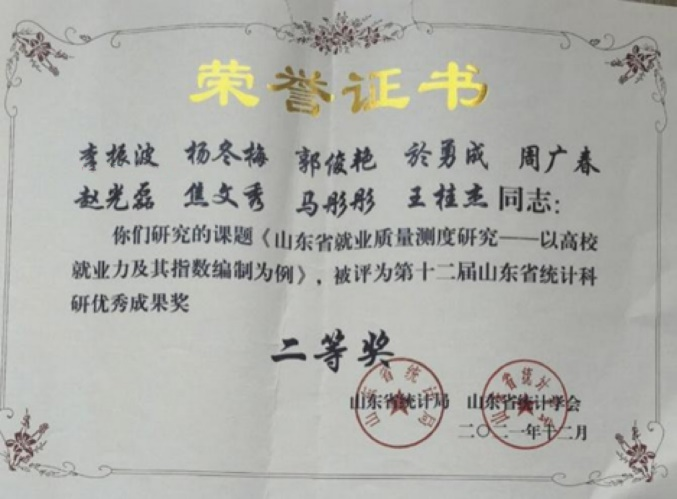 荣誉证书
李振波 杨冬梅 郭俊艳 於勇成 周广春
赵光磊 焦文秀 马彤彤 王桂杰同志：
你们研究的课题《山东省就业质量测度研究——以高校
就业力及其指数编制为例》，被评为第十二届山东省统计科
研优秀成果奖
二等奖
山东省统计局 山东省统计学会
二〇二一年十二月
山东省统计局
山东省统计学会